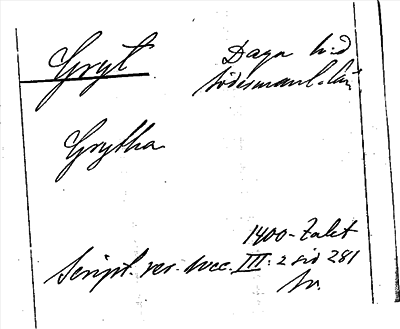 Gryt
Daga h:d
Södermanl. län
Grytha
1400-talet
Script. rer. svec. III: 2 sid 281